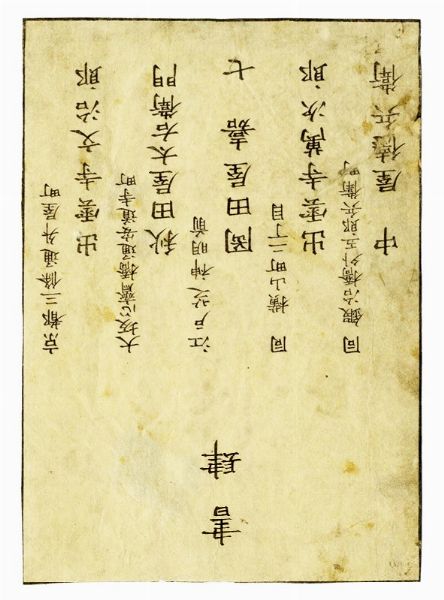 書肆
京都三條通升屋町
出雲寺文治郎
大坂心齋橋通安堂寺町
秋田屋太右衛門
江戸芝神明前
岡田屋嘉七
同 横山町二丁目
出雲寺萬次郎
同 鍛冶橋外五郎兵衛町
中屋徳兵衛